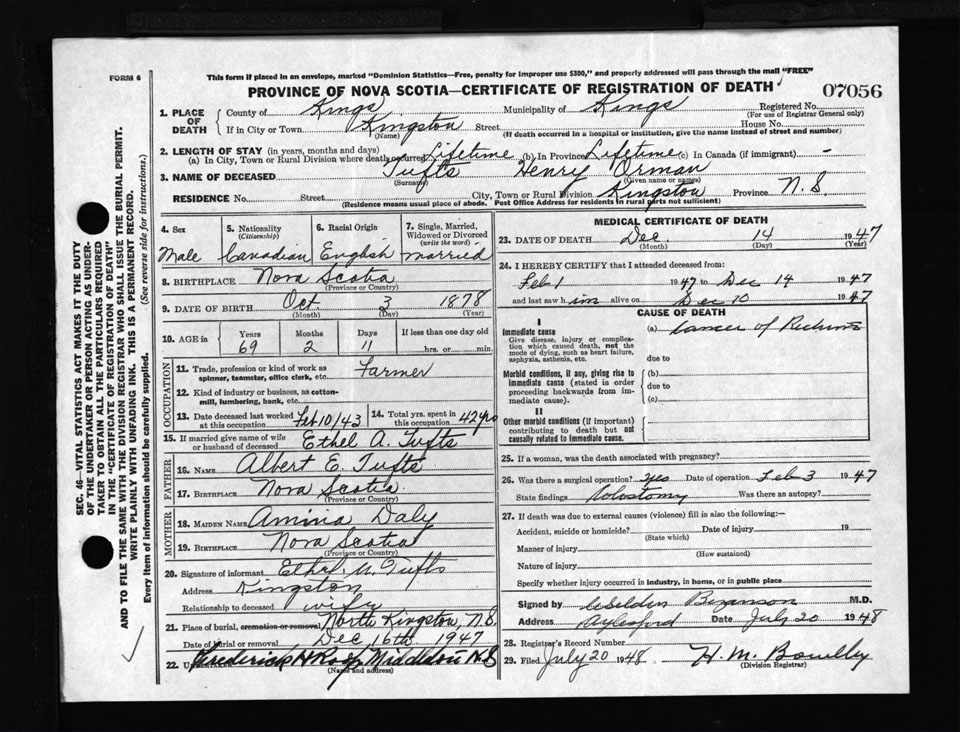 FORM 6
This form if placed in an envelope, marked "Dominion Statistics—Free, penalty for improper use $300," and properly addressed will pass through the mail "FREE"
PROVINCE OF NOVA SCOTIA—CERTIFICATE OF REGISTRATION OF DEATH
07056
1. PLACE OF DEATH
County of Kings Municipality of Kings Registered No.
(For use of Registrar General only)
If in City or Town Kingston Street House No.
(Name) (If death occurred in a hospital or institution, give the name instead of street and number)
2. LENGTH OF STAY (in years, months and days)
(a) In City, Town or Rural Division where death occurred Lifetime (b) In Province Lifetime (c) In Canada (if immigrant) -
3. NAME OF DECEASED Tufts Henry Orman
(Surname) (Given name or names)
RESIDENCE No. Street City, Town or Rural Division Kingston Province N.S.
(Residence means usual place of abode. Post Office Address for residents in rural parts not sufficient)
4. Sex Male
5. Nationality (Citizenship) Canadian
6. Racial Origin English
7. Single, Married, Widowed or Divorced (write the word) married
8. BIRTHPLACE Nova Scotia
(Province or Country)
9. DATE OF BIRTH Oct. 3 1878
(Month) (Day) (Year)
10. AGE in Years 69 Months 2 Days 11 If less than one day old hrs. or min.
OCCUPATION
11. Trade, profession or kind of work as spinner, teamster, office clerk, etc. Farmer
12. Kind of industry or business, as cotton-mill, lumbering, bank, etc.
13. Date deceased last worked at this occupation Feb 10/43
14. Total yrs. spent in this occupation 42 yrs
15. If married give name of wife or husband of deceased Ethel A. Tufts
FATHER
16. NAME Albert E. Tufts
17. BIRTHPLACE Nova Scotia.
(Province or Country)
MOTHER
18. MAIDEN NAME Daly
19. BIRTHPLACE Nova Scotia
(Province or Country)
20. Signature of informant Ethel Tufts
Address Kingston
Relationship to deceased wife
21. Place of burial, cremation or removal North Kingston, N.S.
Date of burial or removal Dec 16th 1947
22. Frederick H Middleton N.S
(Name and address)
MEDICAL CERTIFICATE OF DEATH
23. DATE OF DEATH Dec. 14 1947
(Month) (Day) (Year)
24. I HEREBY CERTIFY that I attended deceased from:
Feb 1 1947 to Dec 14 1947
and last saw him alive on Dec 10 1947
CAUSE OF DEATH
I
Immediate cause
Give disease, injury or complication which caused death, not the mode of dying, such as heart failure, asphyxia, asthenia, etc.
(a) Cancer of
due to
Morbid conditions, if any, giving rise to immediate cause (stated in order proceeding backwards from immediate cause).
(b)
due to
(c)
II
Other morbid conditions (if important) contributing to death but not causally related to immediate cause.
25. If a woman, was the death associated with pregnancy?
26. Was there a surgical operation? yes Date of operation Feb 3 1947
State findings Colostomy Was there an autopsy?
27. If death was due to external causes (violence) fill in also the following:—
Accident, suicide or homicide? Date of injury 19
(State which)
Manner of injury
(How sustained)
Nature of injury
Specify whether injury occurred in industry, in home, or in public place
Signed by M.D.
Address Aylesford Date July 20 1948
28. Registrar's Record Number
29. Filed July 20 1948 H. M.
(Division Registrar)
SEC. 46—VITAL STATISTICS ACT MAKES IT THE DUTY
OF THE UNDERTAKER OR PERSON ACTING AS UNDER-
TAKER TO OBTAIN ALL THE PARTICULARS REQUIRED
IN THE "CERTIFICATE OF REGISTRATION OF DEATH"
AND TO FILE THE SAME WITH THE DIVISION REGISTRAR WHO SHALL ISSUE THE BURIAL PERMIT.
WRITE PLAINLY WITH UNFADING INK. THIS IS A PERMANENT RECORD.
Every item of information should be carefully supplied. (See reverse side for instructions.)